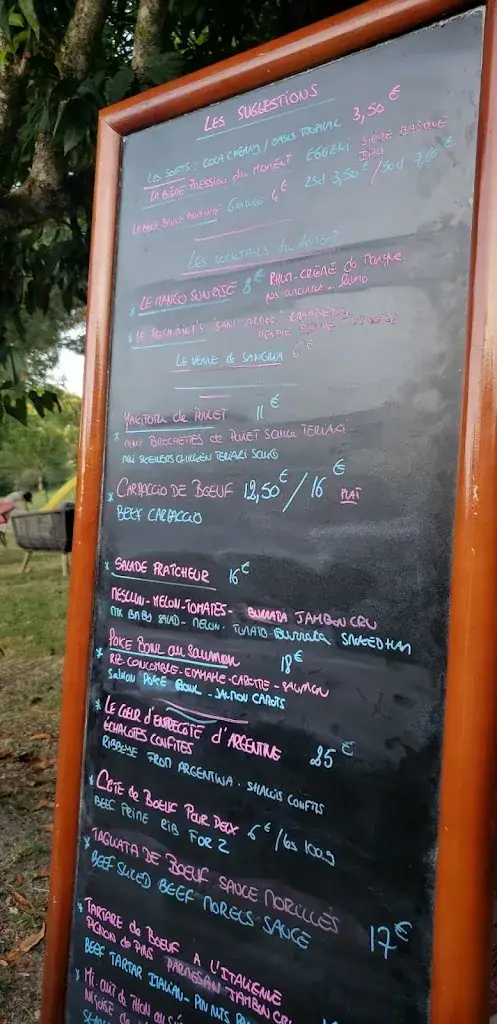 LES SUGGESTIONS
LES SOFTS: COCA CHERRY / OASIS TROPICAL 3,50 €
LA BIÈRE PRESSION du MOMENT EGUZKI BIÈRE BASQUE IPA
25cl 3,50€ / 50cl
4€
Les cocktails du MOMENT
* LE MANGO SUNRISE 8€ RHUM-CRÈME de MANGUE
SANS ALCOOL
MENTHE
LE VERRE de SANGRIA 6€
YAKITORI de POULET 11€
* MINI BROCHETTES de POULET SAUCE TERIYAKI
MINI SKEWERS CHICKEN TERIAKI SAUCE
* CARPACCIO DE BOEUF 12,50€ / 16€ PLAT
BEEF CARPACCIO
* SALADE FRAÎCHEUR 16€
MESCLUN-MELON-TOMATES- BURRATA JAMBON CRU
SALAD - MELON - TOMATO BURRATA SMOKED HAM
* POKE BOWL au SAUMON 18€
RIZ CONCOMBRE-EDAMAME-CAROTTE-SAUMON
SALMON POKE BOWL - SALMON CAROTS
* LE COEUR d'ENTRECÔTE d'ARGENTINE 25€
ÉCHALOTES CONFITES
RIBBEYE FROM ARGENTINA. SHALLOTS CONFITS
* CÔTE de BOEUF POUR DEUX 6€/les 100g
BEEF PRIME RIB FOR 2
* TAGLIATA DE BOEUF SAUCE MORILLES 17€
BEEF SLICED BEEF MORELS SAUCE
* TARTARE de BOEUF A L'ITALIENNE
PIGNON de PINS PARMESAN JAMBON CRU
BEEF TARTAR ITALIAN - PIN NUTS
* MI-CUIT de THON